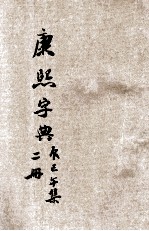 康熙字典
辰巳午集
二册